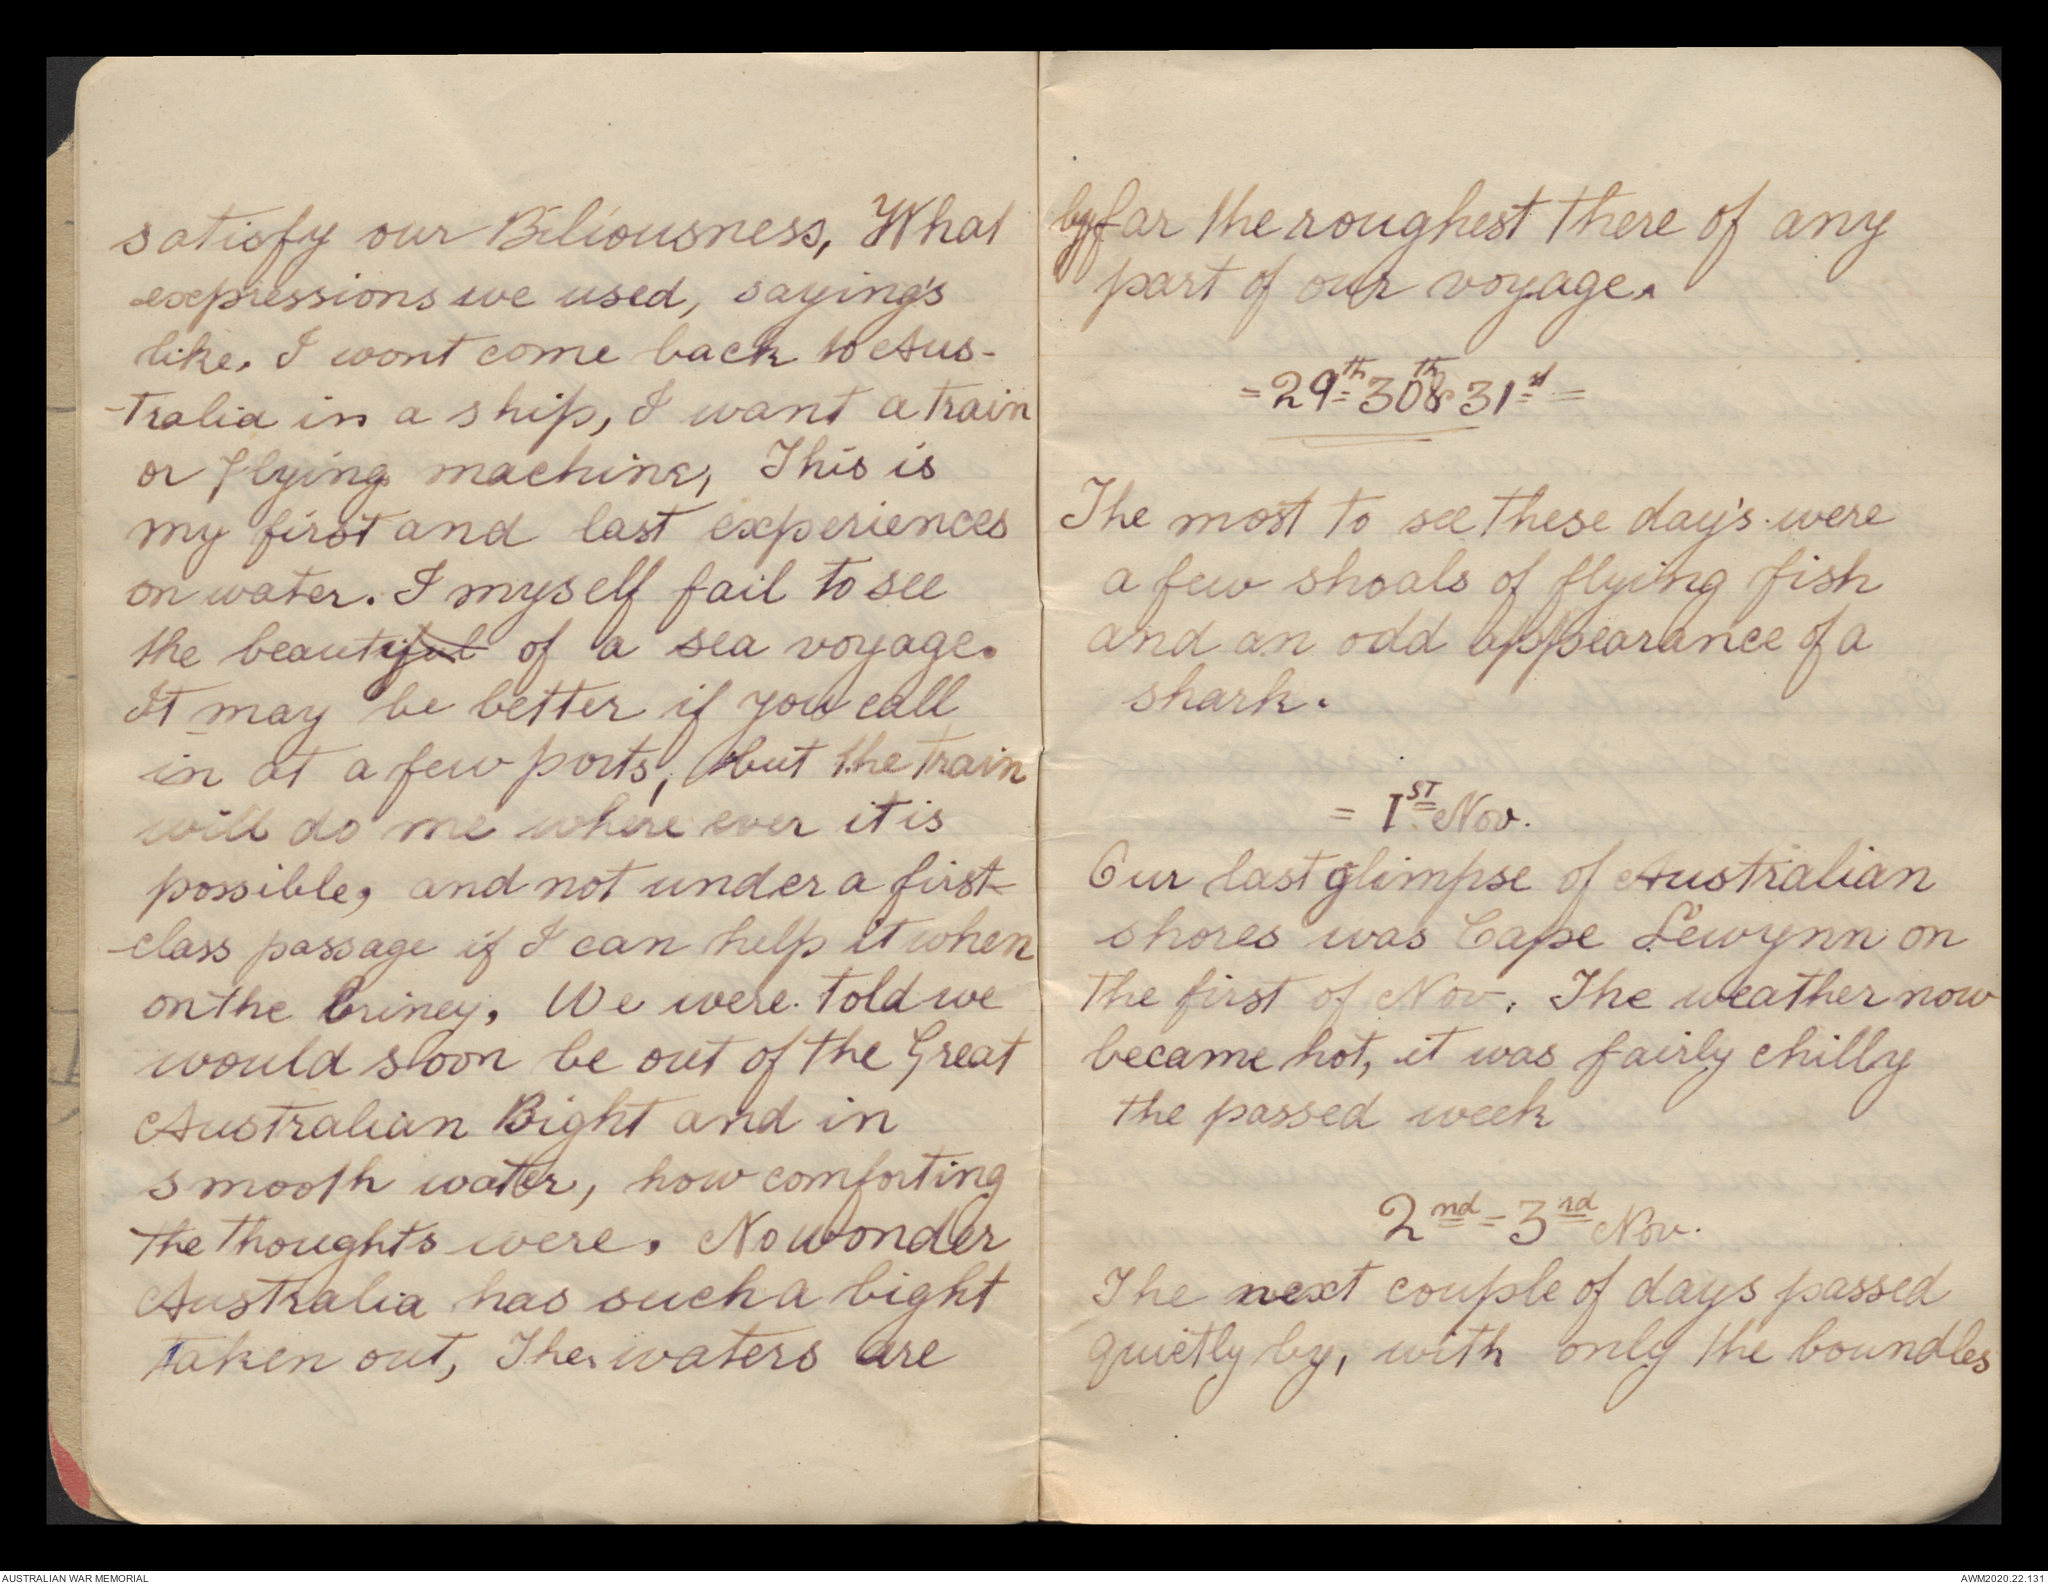 satisfy our Biliousness, What
expressions we used, saying's
like. I wont come back to Aus-
-tralia in a ship, I want a train
or flying machine, This is
my first and last experiences
on water. I myself fail to see
the beautiful of a sea voyage.
It may be better if you call
in at a few ports, but the train
will do me where ever it is
possible, and not under a first-
-class passage if I can help it when
on the briney. We were told we
would soon be out of the Great
Australian Bight and in
smooth water, how comforting
the thoughts were. No wonder
Australia has such a bight
taken out, The waters are
by far the roughest there of any
part of our voyage.
= 29th = 30th & 31st =
The most to see these day's were
a few shoals of flying fish
and an odd appearance of a
shark.
= 1ST = Nov.
Our last glimpse of Australian
shores was Cape Lewynn on
the first of Nov. The weather now
became hot, it was fairly chilly
the passed week
2nd = 3rd Nov.
The next couple of days passed
quietly by, with only the boundles
AUSTRALIAN WAR MEMORIAL
AWM2020.22.131